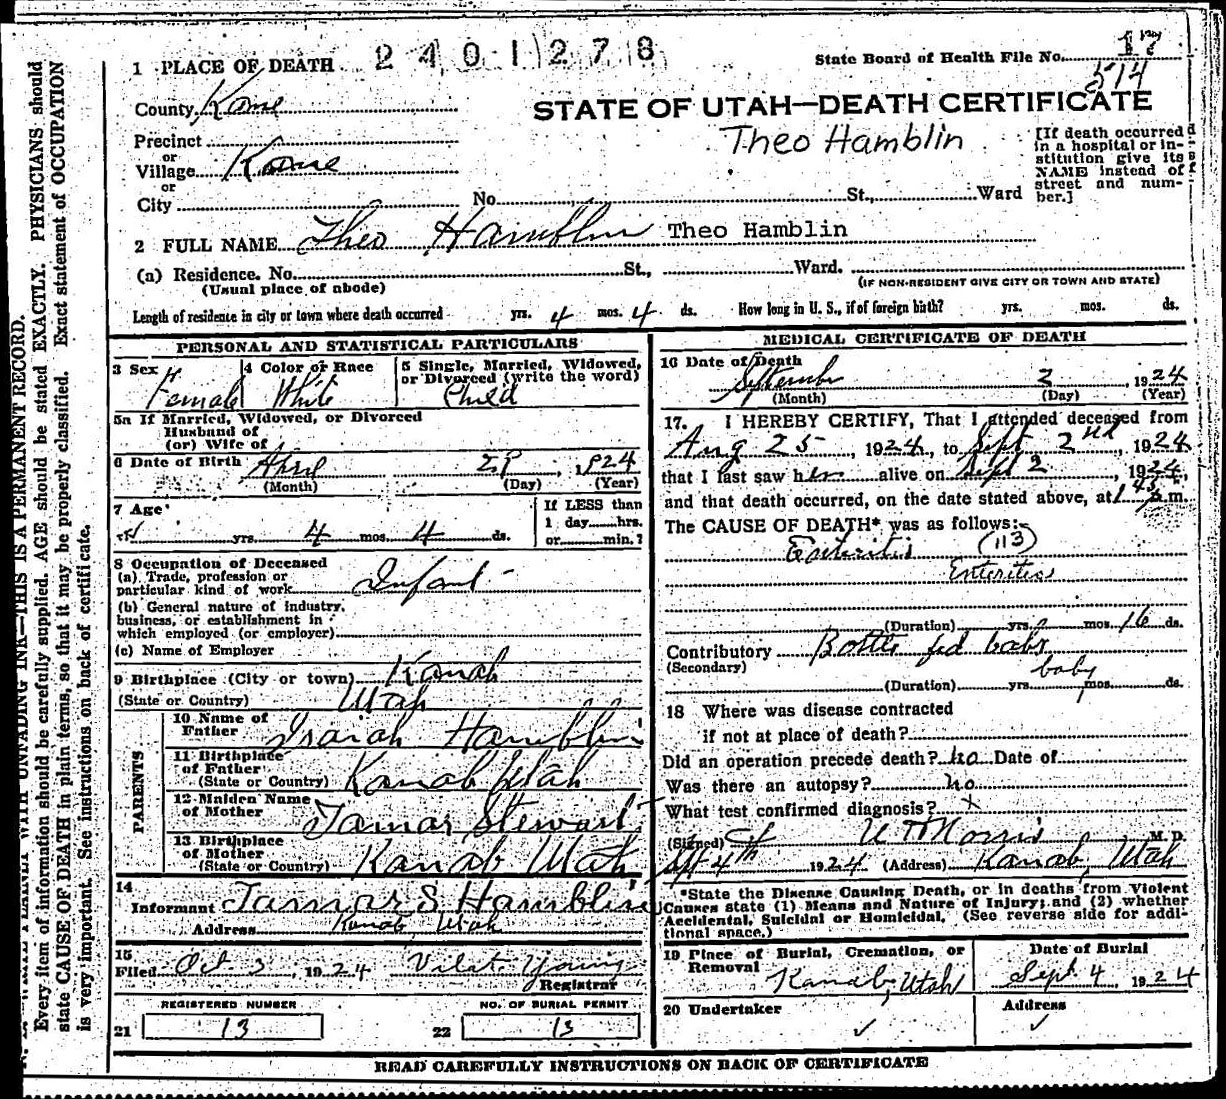 2401278
State Board of Health File No. 17
514
1 PLACE OF DEATH
County Kane
STATE OF UTAH—DEATH CERTIFICATE
Theo Hamblin
[If death occurred in a hospital or institution give its NAME instead of street and number.]
Precinct
or
Village Kane
or
City No. St., Ward
2 FULL NAME Theo Hamblin Theo Hamblin
(a) Residence. No. St., Ward.
(Usual place of abode) (IF NON-RESIDENT GIVE CITY OR TOWN AND STATE)
Length of residence in city or town where death occurred yrs. 4 mos. 4 ds. How long in U. S., if of foreign birth? yrs. mos. ds.
PERSONAL AND STATISTICAL PARTICULARS
3 Sex Female
4 Color or Race White
5 Single, Married, Widowed, or Divorced (write the word) Child
5a If Married, Widowed, or Divorced
Husband of
(or) Wife of
6 Date of Birth April 29, 1924
(Month) (Day) (Year)
7 Age
yrs. 4 mos. 4 ds.
If LESS than
1 day hrs.
or min.?
8 Occupation of Deceased
(a) Trade, profession or
particular kind of work Infant
(b) General nature of industry,
business, or establishment in
which employed (or employer)
(c) Name of Employer
9 Birthplace (City or town) Kanab
(State or Country) Utah
PARENTS
10 Name of
Father Isaiah Hamblin
11 Birthplace
of Father
(State or Country) Kanab Utah
12 Maiden Name
of Mother Tamar Stewart
13 Birthplace
of Mother
(State or Country) Kanab Utah
14
Informant Tamar S Hamblin
Address Kanab, Utah
15
Filed Oct. 3, 1924 Vilat Young
Registrar
REGISTERED NUMBER NO. OF BURIAL PERMIT
21 13 22 13
MEDICAL CERTIFICATE OF DEATH
16 Date of Death
September 2, 1924
(Month) (Day) (Year)
17. I HEREBY CERTIFY, That I attended deceased from
Aug 25, 1924, to Sept 2nd, 1924
that I last saw h alive on Sept 2, 1924,
and that death occurred, on the date stated above, at 1 45 m.
The CAUSE OF DEATH* was as follows:
Enteritis (113)
Enteritis
(Duration) yrs. mos. 16 ds.
Contributory Bottle fed baby
(Secondary) baby
(Duration) yrs. mos. ds.
18 Where was disease contracted
if not at place of death?
Did an operation precede death? no Date of
Was there an autopsy? no
What test confirmed diagnosis? x
(Signed) Norris M. D.
Sept 4th 1924 (Address) Kanab, Utah
*State the Disease Causing Death, or in deaths from Violent
Causes state (1) Means and Nature of Injury; and (2) whether
Accidental, Suicidal or Homicidal. (See reverse side for addi-
tional space.)
19 Place of Burial, Cremation, or
Removal
Kanab, Utah
Date of Burial
Sept. 4 1924
20 Undertaker ✓
Address ✓
READ CAREFULLY INSTRUCTIONS ON BACK OF CERTIFICATE
WITH UNFADING INK—THIS IS A PERMANENT RECORD.
Every item of information should be carefully supplied. AGE should be stated EXACTLY. PHYSICIANS should
state CAUSE OF DEATH in plain terms, so that it may be properly classified. Exact statement of OCCUPATION
is very important. See instructions on back of certificate.